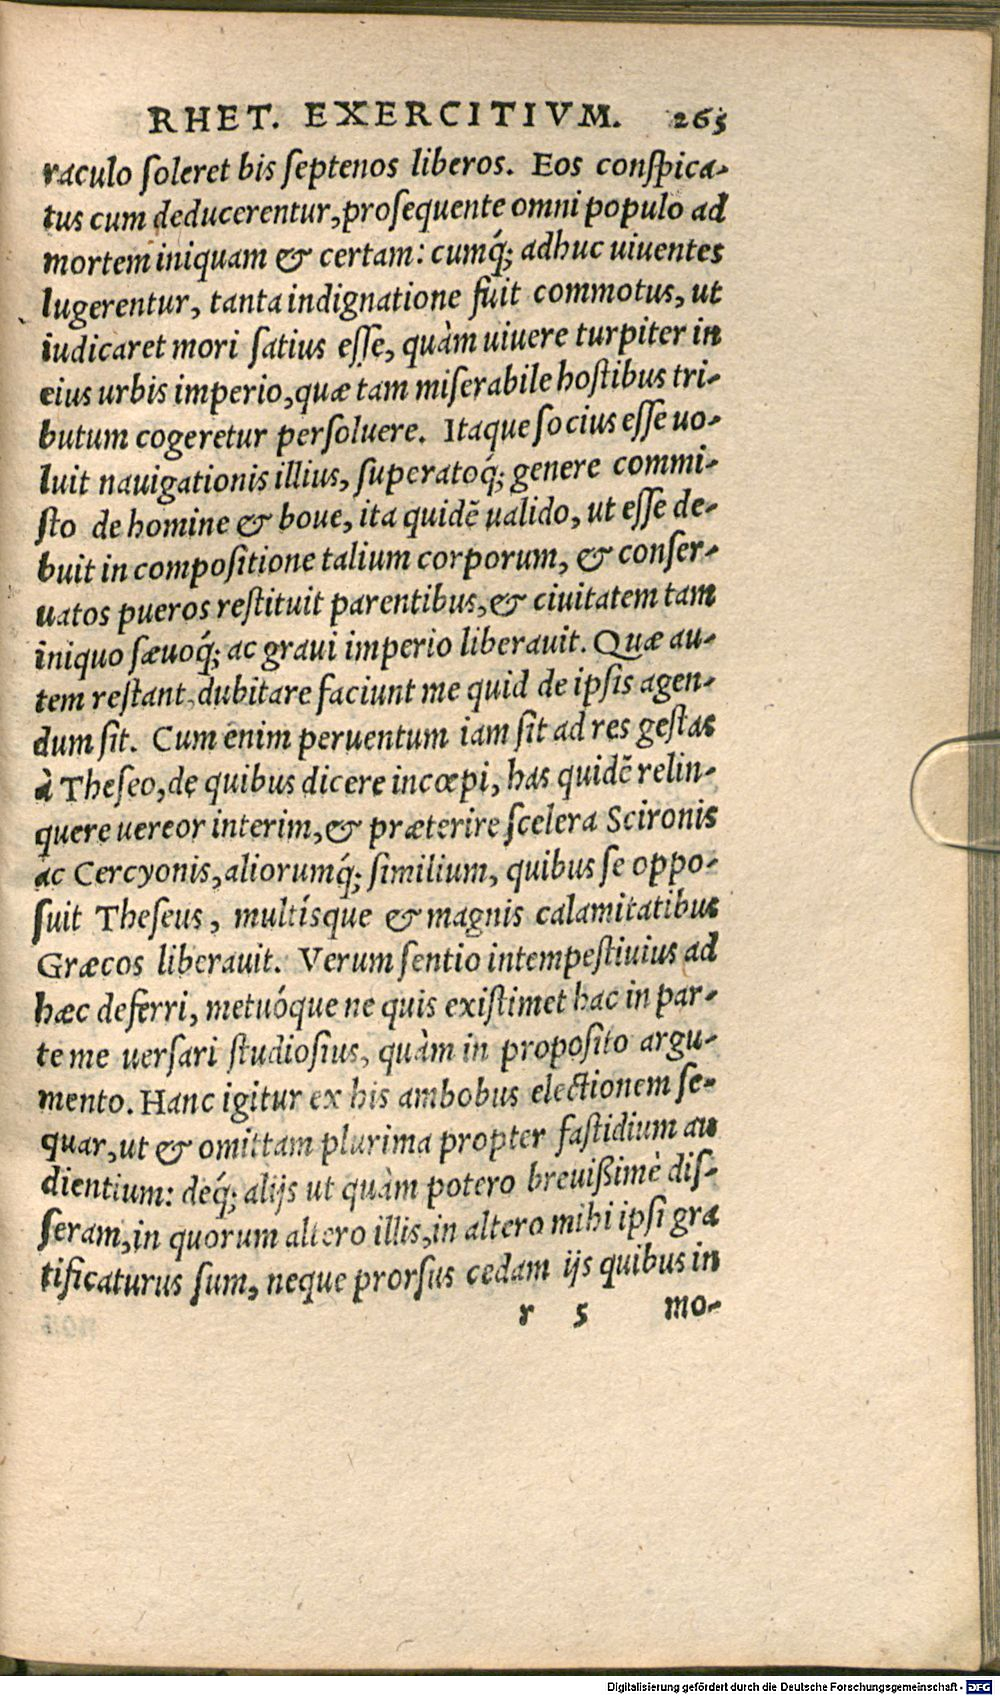 RHET. EXERCITIVM. 265
raculo ſoleret bis ſeptenos liberos. Eos conſpica-
tus cum deducerentur, proſequente omni populo ad
mortem iniquam & certam: cumq́; adhuc uiuentes
lugerentur, tanta indignatione fuit commotus, ut
iudicaret mori ſatius eſſe, quàm uiuere turpiter in
eius urbis imperio, quæ tam miſerabile hoſtibus tri-
butum cogeretur perſoluere. Itaque ſocius eſſe uo-
luit nauigationis illius, ſuperatoq́; genere commi-
ſto de homine & boue, ita quidẽ ualido, ut eſſe de-
buit in compoſitione talium corporum, & conſer-
uatos pueros reſtituit parentibus, & ciuitatem tam
iniquo ſæuoq́; ac graui imperio liberauit. Quæ au-
tem reſtant, dubitare faciunt me quid de ipſis agen-
dum ſit. Cum enim peruentum iam ſit ad res geſtas
à Theſeo, de quibus dicere incœpi, has quidẽ relin-
quere uereor interim, & præterire ſcelera Scironis
ac Cercyonis, aliorumq́; ſimilium, quibus ſe oppo-
ſuit Theſeus, multísque & magnis calamitatibus
Græcos liberauit. Verum ſentio intempeſtiuius ad
hæc deferri, metuóque ne quis exiſtimet hac in par-
te me uerſari ſtudioſius, quàm in propoſito argu-
mento. Hanc igitur ex his ambobus electionem ſe-
quar, ut & omittam plurima propter faſtidium au
dientium: deq́; alijs ut quàm potero breuißimè diſ-
ſeram, in quorum altero illis, in altero mihi ipſi gra
tificaturus ſum, neque prorſus cedam ijs quibus in
r 5 mo-
Digitalisierung gefördert durch die Deutsche Forschungsgemeinschaft - DFG